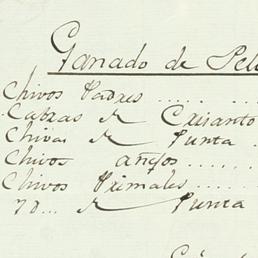 Ganado de Pel
Chivos Padres .... .
Cabras de Crisanto
Chivas de Punta .
Chivos añejos .....
Chivos Primales .....
Id... de Punta